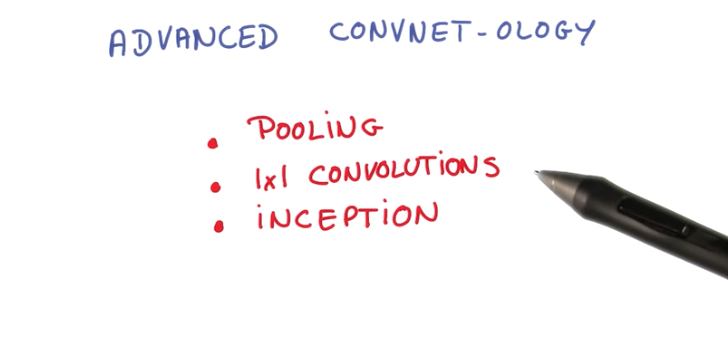 ADVANCED CONVNET-OLOGY
• POOLING
• 1x1 CONVOLUTIONS
• INCEPTION